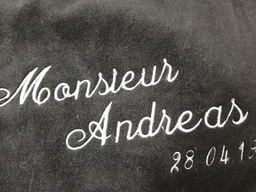 Monsieur
Andreas
28 04 13